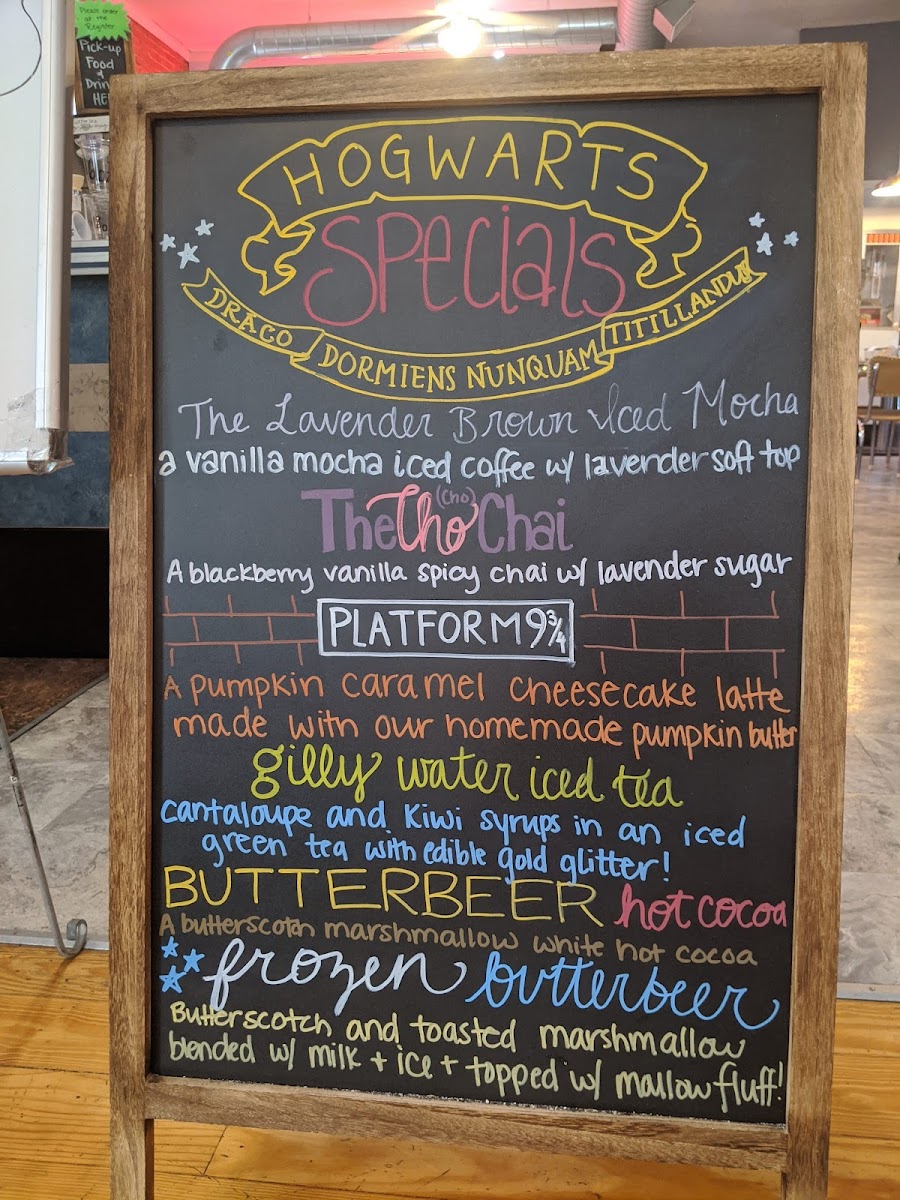 Please order
at the
Register
Pick-up
Food
&
Drin
HE
HOGWARTS
SPecials
DRACO DORMIENS NUNQUAM TITILLANDUS
The Lavender Brown Iced Mocha
a vanilla mocha iced coffee w/ lavender soft top
The Cho (Cho) Chai
A blackberry vanilla spicy chai w/ lavender sugar
PLATFORM 9 3/4
A pumpkin caramel cheesecake latte
made with our homemade pumpkin butter
gilly water iced tea
cantaloupe and kiwi syrups in an iced
green tea with edible gold glitter!
BUTTERBEER hot cocoa
A butterscotch marshmallow white hot cocoa
frozen butterbeer
Butterscotch and toasted marshmallow
blended w/ milk + ice + topped w/ mallow fluff!